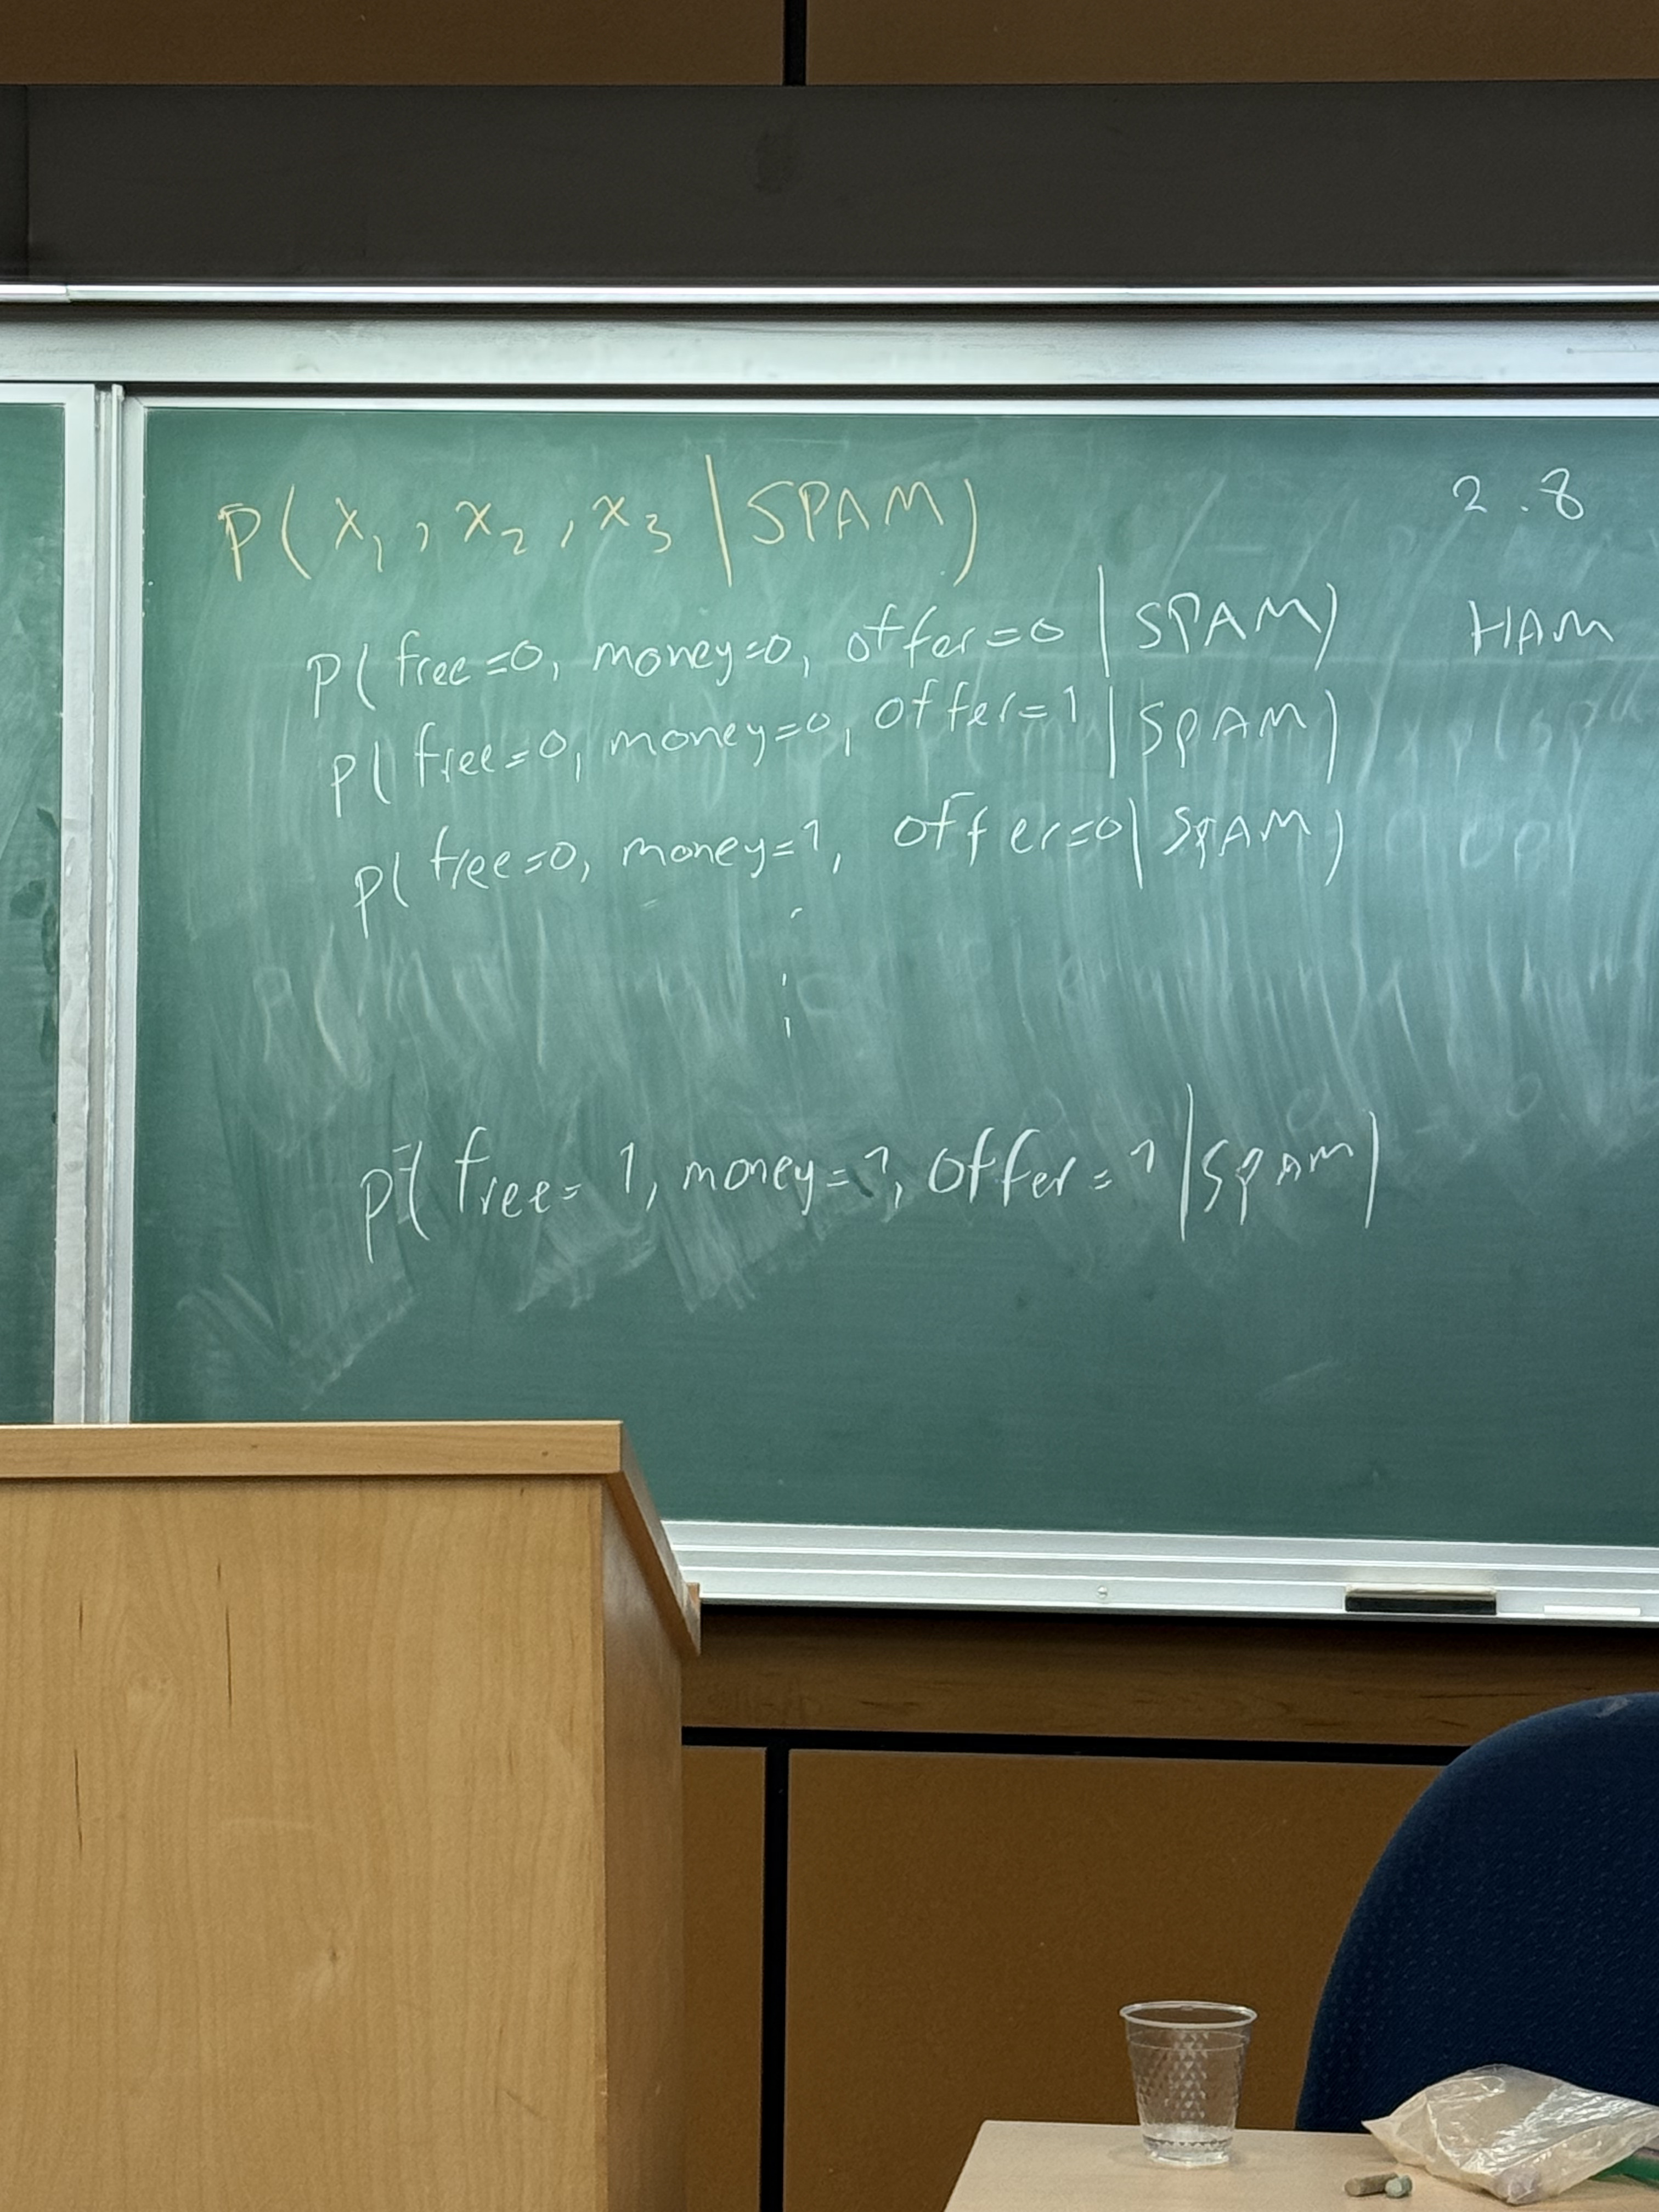 P(x₁, x₂, x₃ | SPAM) 2.8
P(free=0, money=0, offer=0 | SPAM) HAM
P(free=0, money=0, offer=1 | SPAM)
P(free=0, money=1, offer=0 | SPAM)
P(free=1, money=1, offer=1 | SPAM)